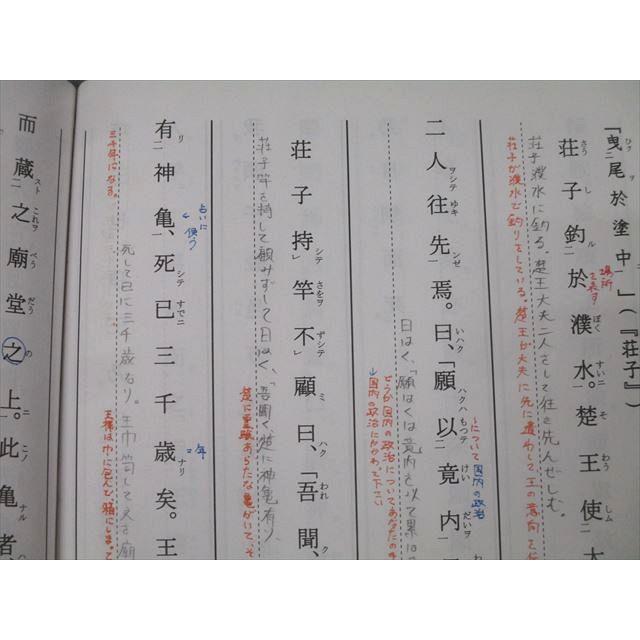 「曳尾於塗中」(『荘子』)
荘子釣於濮水。楚王使大
場所を表す
荘子濮水に釣る。楚王大夫二人をして往き先んぜしむ。
荘子が濮水で釣りをしている。楚王が大夫に先に遣わして王の意向を
二人往先焉。曰、「願以竟内
〜について 国内の政治
曰はく、「願はくは竟内を以て累
どうか国内の政治についてあなたの
↓国内の政治にたずさわって下さい
荘子持竿不顧曰、「吾聞、
荘子竿を持して顧みずして曰はく、「吾聞く、楚に神亀有り、
楚に霊験あらたな亀がいて、そ
有神亀、死已三千歳矣。王
占いに使う
=年
三千年になる。
死して已に三千歳なり。王巾笥して之を廟
王様は巾に包んで箱にしまって
而蔵之廟堂之上。此亀者、